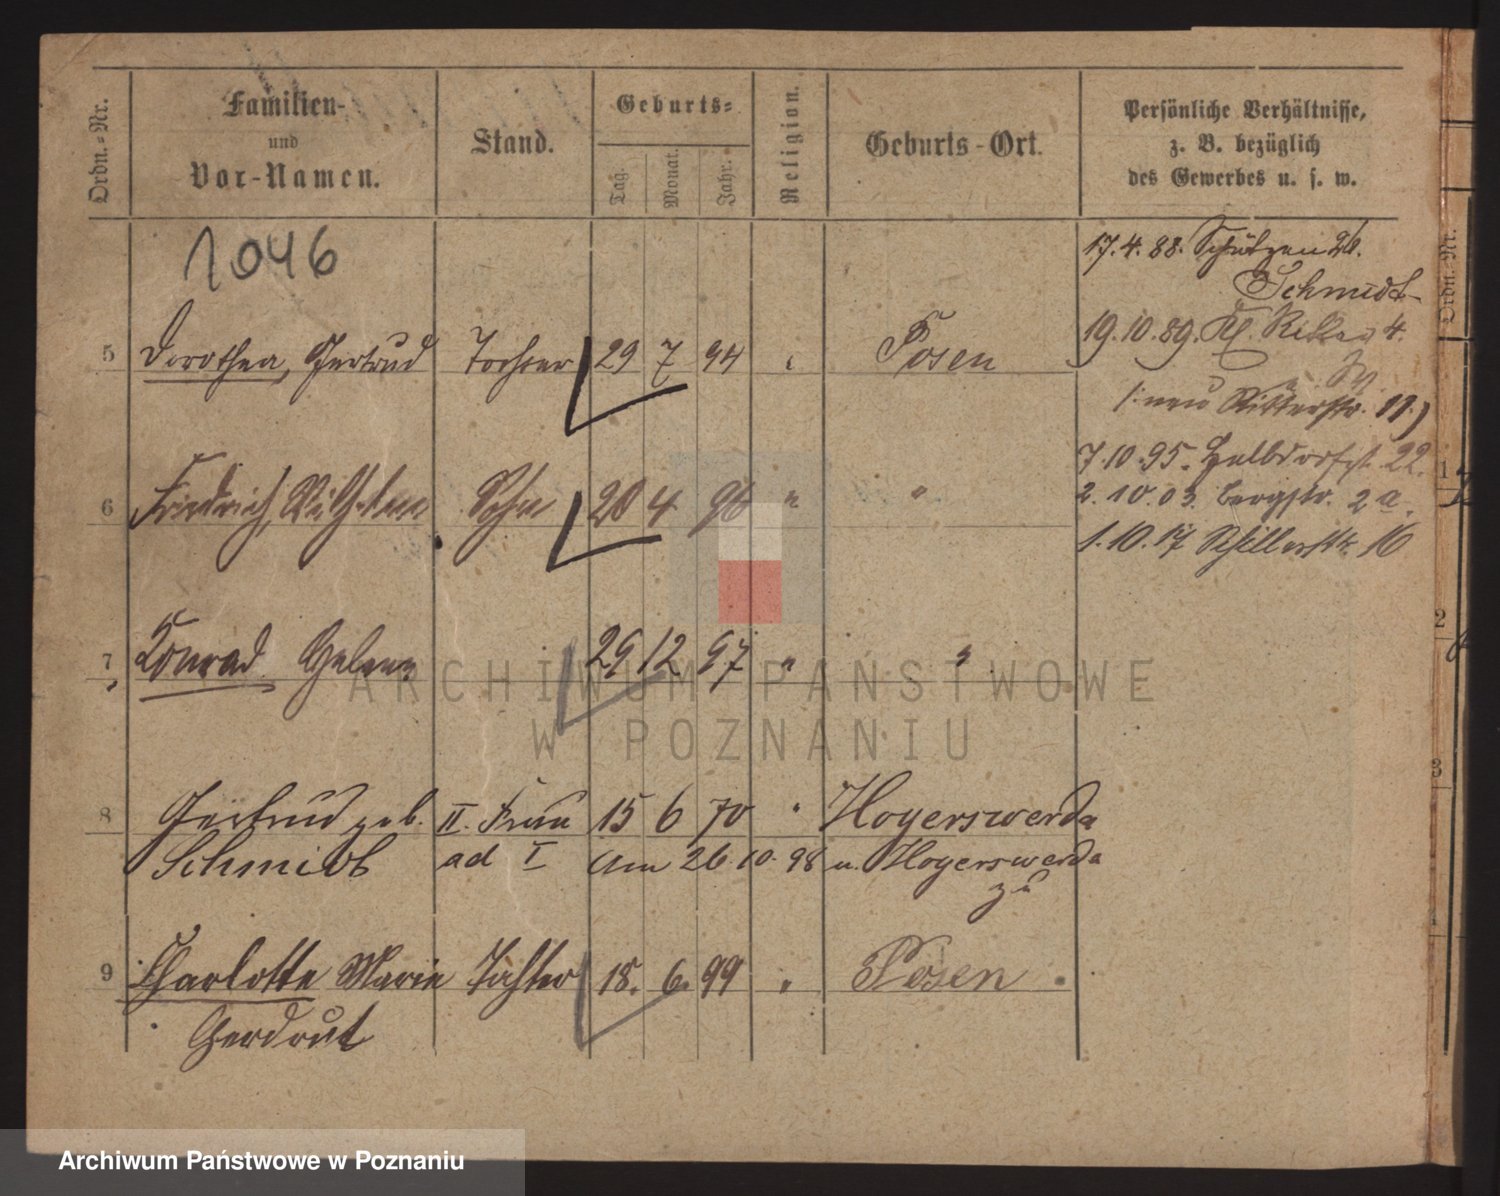 Ordn.-Nr.
Familien-
und
Vor-Namen.
Stand.
Geburts-
Tag.
Monat.
Jahr.
Religion.
Geburts-Ort.
Persönliche Verhältnisse,
z. B. bezüglich
des Gewerbes u. s. w.
1046
17.4.88. Schützen 26.
Schmidt
19.10.89. Kl. Ritter 4.
5 Dorothea, Gertrud Tochter 29 7 94 " Posen
(: neu Ritterstr. 11.)
7.10.95. Halbdorfst. 22.
6 Friedrich, Wilhelm Sohn 20 4 96 " "
2.10.03. Bergstr. 2a.
1.10.17 Schillerstr. 16
7 Konrad Helene 29 12 97 " "
8 Gertrud geb. II. Frau 15 6 70 " Hoyerswerda
Schmidt ad I am 26.10.98 u. Hoyerswerda
zu
9 Charlotte Marie Tochter 18. 6. 99 " Posen
Gerdrut
Ordn.-Nr.
1
2
3
ARCHIWUM PAŃSTWOWE
W POZNANIU
Archiwum Państwowe w Poznaniu